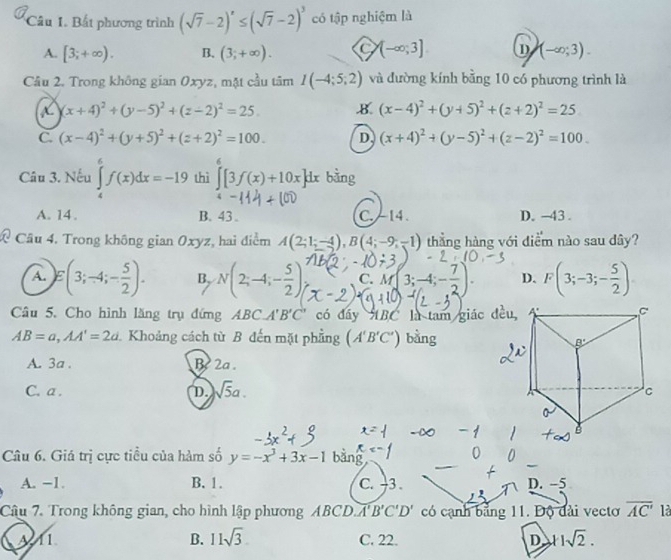 Câu 1. Bất phương trình (√7 - 2)^x ≤ (√7 - 2)^3 có tập nghiệm là
A. [3;+∞). B. (3;+∞). C. (-∞;3]. D. (-∞;3).
Câu 2. Trong không gian Oxyz, mặt cầu tâm I(-4;5;2) và đường kính bằng 10 có phương trình là
A. (x+4)² + (y-5)² + (z-2)² = 25. B. (x-4)² + (y+5)² + (z+2)² = 25
C. (x-4)² + (y+5)² + (z+2)² = 100. D. (x+4)² + (y-5)² + (z-2)² = 100.
Câu 3. Nếu ∫₄⁶ f(x)dx = -19 thì ∫₄⁶ [3f(x)+10x]dx bằng
-114 + 100
A. 14. B. 43. C. -14. D. -43.
Câu 4. Trong không gian Oxyz, hai điểm A(2;1;-4), B(4;-9;-1) thẳng hàng với điểm nào sau đây?
AB(2; -10; 3) -2; 10, -3
A. E(3;-4;-5/2). B. N(2;-4;-5/2). C. M(3;-4;-7/2). D. F(3;-3;-5/2).
Câu 5. Cho hình lăng trụ đứng ABC.A'B'C' có đáy ABC là tam giác đều, A' C'
AB = a, AA' = 2a. Khoảng cách từ B đến mặt phẳng (A'B'C') bằng B'
A. 3a. B. 2a. 2a
C. a. D. √5a. A C
a
B
-3x² + 3 x=1 -∞ -1 1 +∞
Câu 6. Giá trị cực tiểu của hàm số y = -x³ + 3x - 1 bằng x=-1 0 0
- + -
A. -1. B. 1. C. -3. D. -5
Câu 7. Trong không gian, cho hình lập phương ABCD.A'B'C'D' có cạnh bằng 11. Độ dài vectơ AC' là
A. 11 B. 11√3. C. 22. D. 11√2.